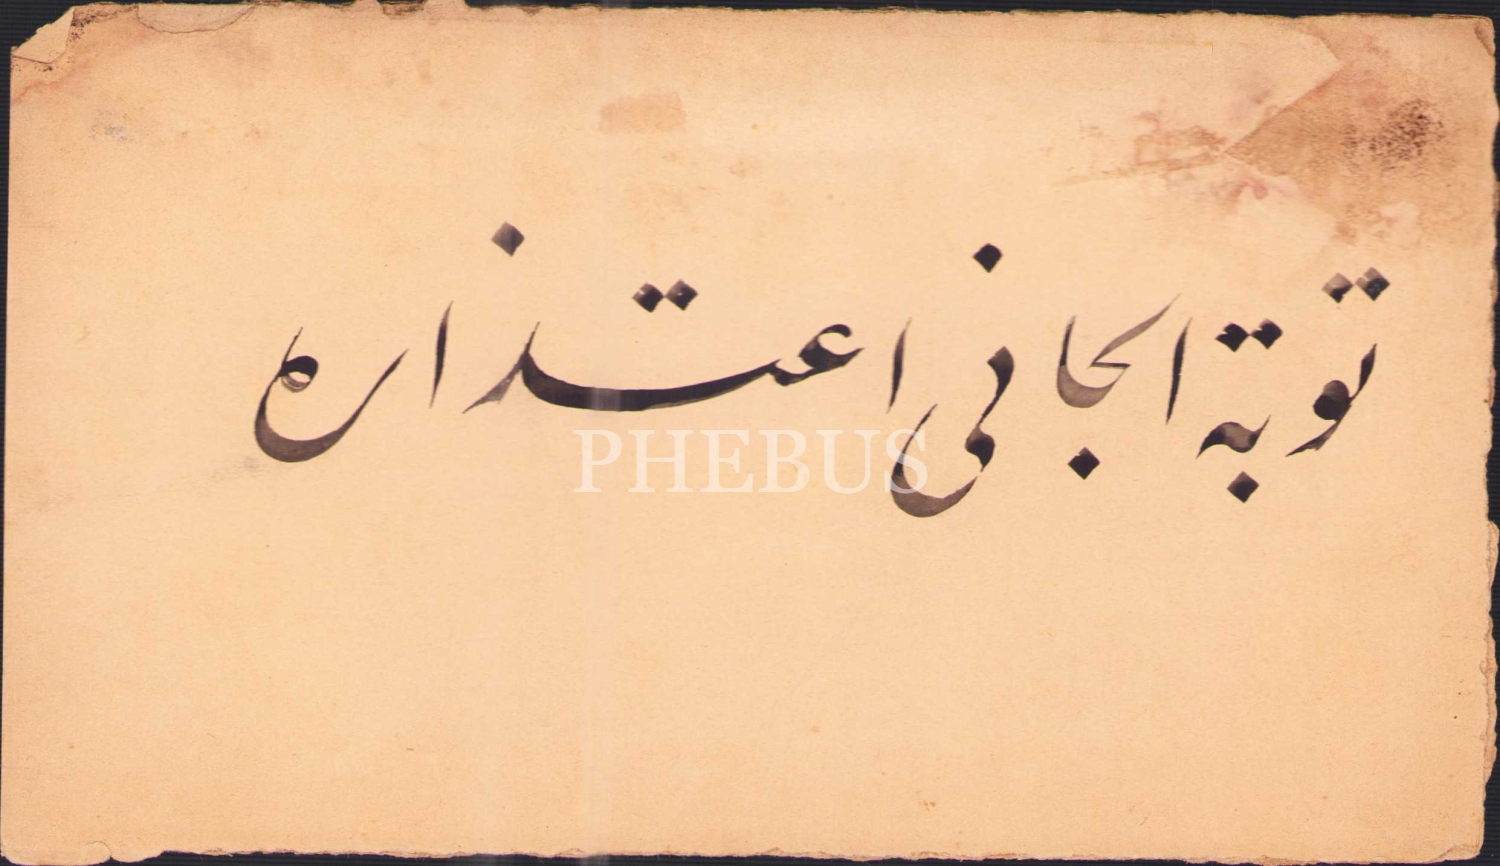 توبة الجانى اعتذاره
PHEBUS